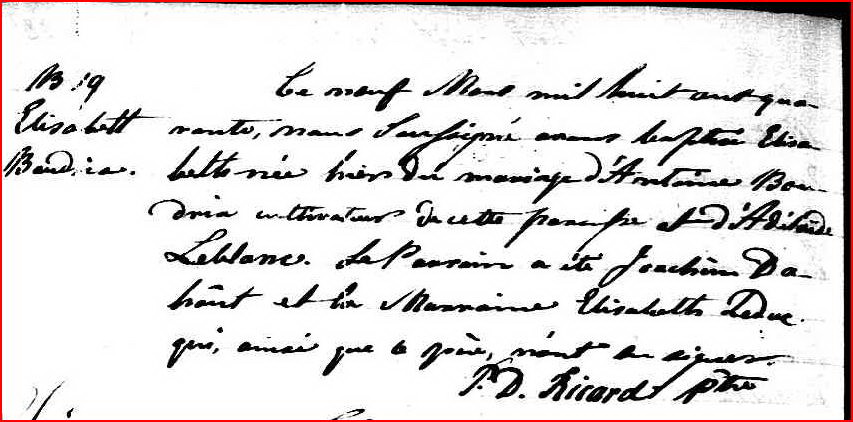 B 19
Elisabeth
Boudria.
Le neuf Mars mil huit cent qua-
rante, nous soussigné avons baptisé Elisa-
beth née hier du mariage d'Antoine Bou-
dria cultivateur de cette paroisse et d'Adélaïde
Leblanc. Le Parrain a été Joachim Da-
hout et la Marraine Elisabeth Leduc
qui, ainsi que le père, n'ont su signer.
P. D. Ricard ptre